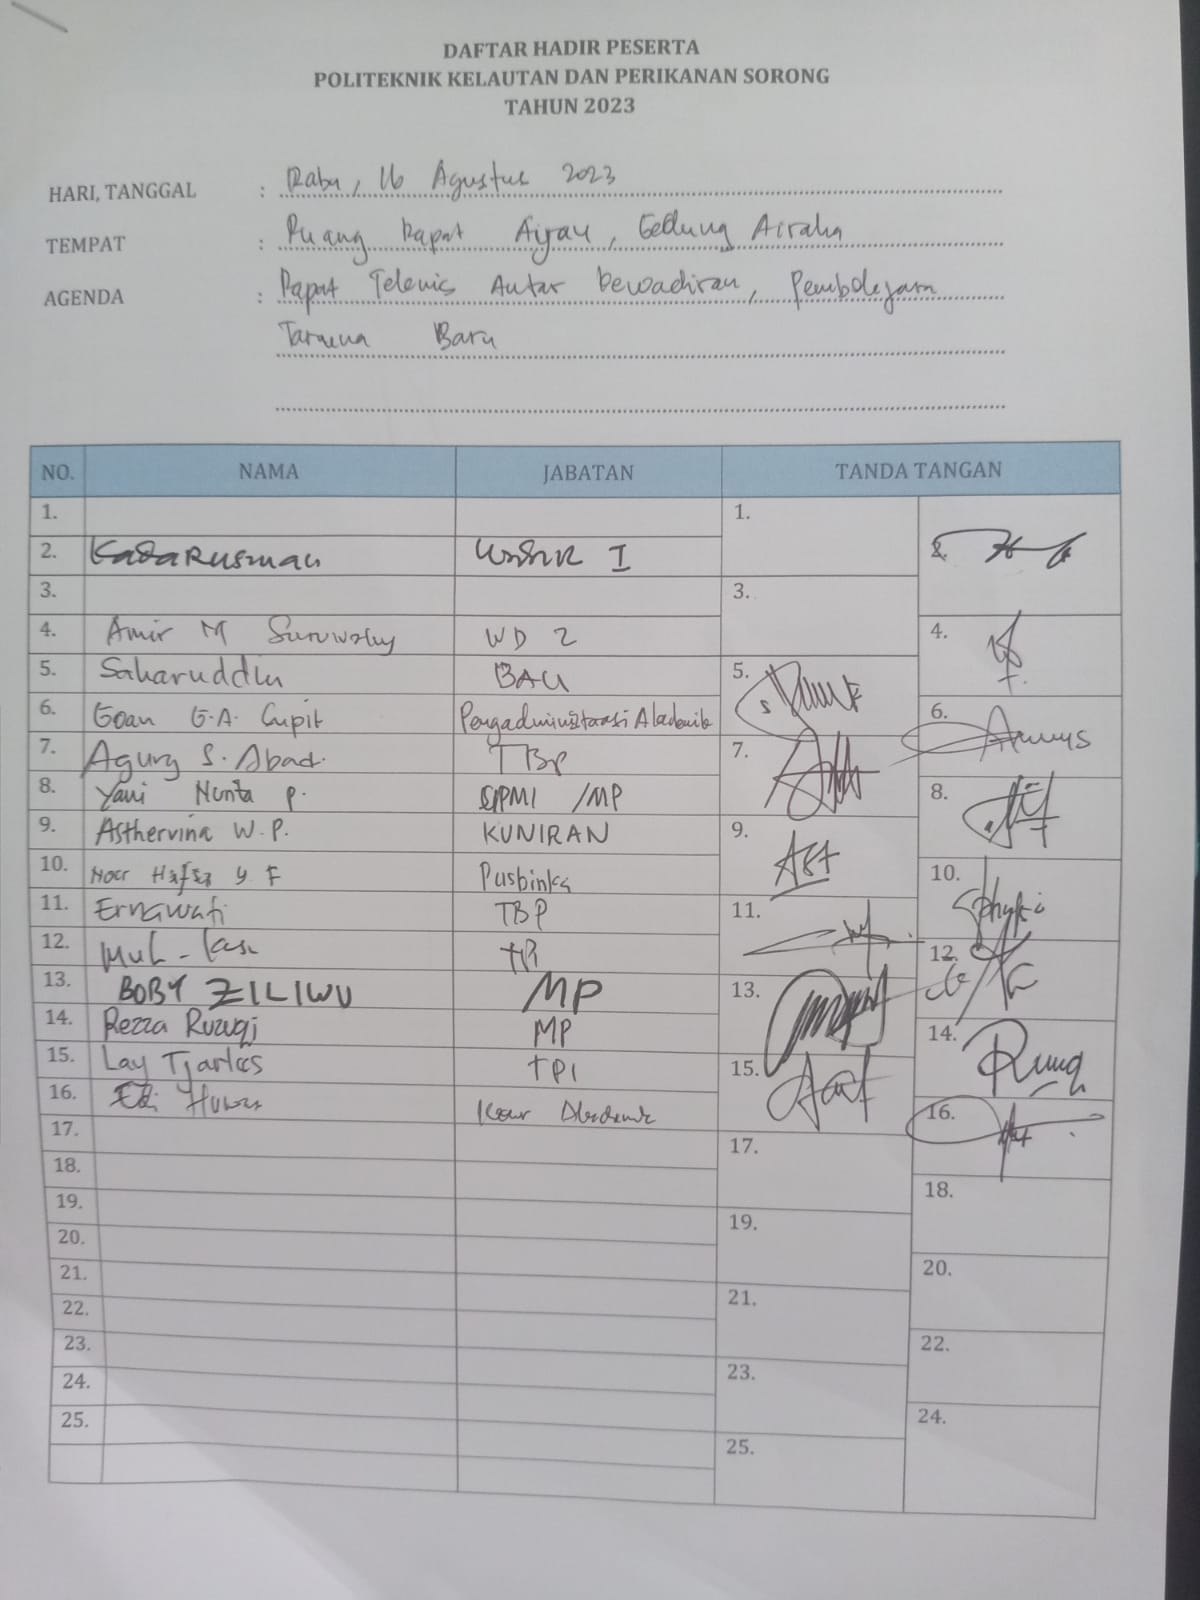 DAFTAR HADIR PESERTA
POLITEKNIK KELAUTAN DAN PERIKANAN SORONG
TAHUN 2023
HARI, TANGGAL : Rabu, 16 Agustus 2023
TEMPAT : Ruang Rapat Ayau, Gedung Airaha
AGENDA : Rapat Teknis Antar Kewadiran, Pembelajaran
Taruna Baru
NO. NAMA JABATAN TANDA TANGAN
1. 1.
2. Kadarusman WADIR I 2.
3. 3.
4. Amir M Suruwaky WD 2 4.
5. Saharuddin BAU 5.
6. Goan G.A. Cupit Pengadministrasi Akademik 6.
7. Agung S. Abad. TBP 7.
8. Yani Nunta P. SPMI / MP 8.
9. Asthervina W.P. KUNIRAN 9.
10. Noor Hafsa Y F Pusbinka 10.
11. Ernawati TBP 11.
12. Muh - 12.
13. BOBY ZILIWU MP 13.
14. Rezza Ruzuqi MP 14.
15. Lay Tjarles TPI 15.
16. Kaur Akademik 16.
17. 17.
18. 18.
19. 19.
20. 20.
21. 21.
22. 22.
23. 23.
24. 24.
25. 25.